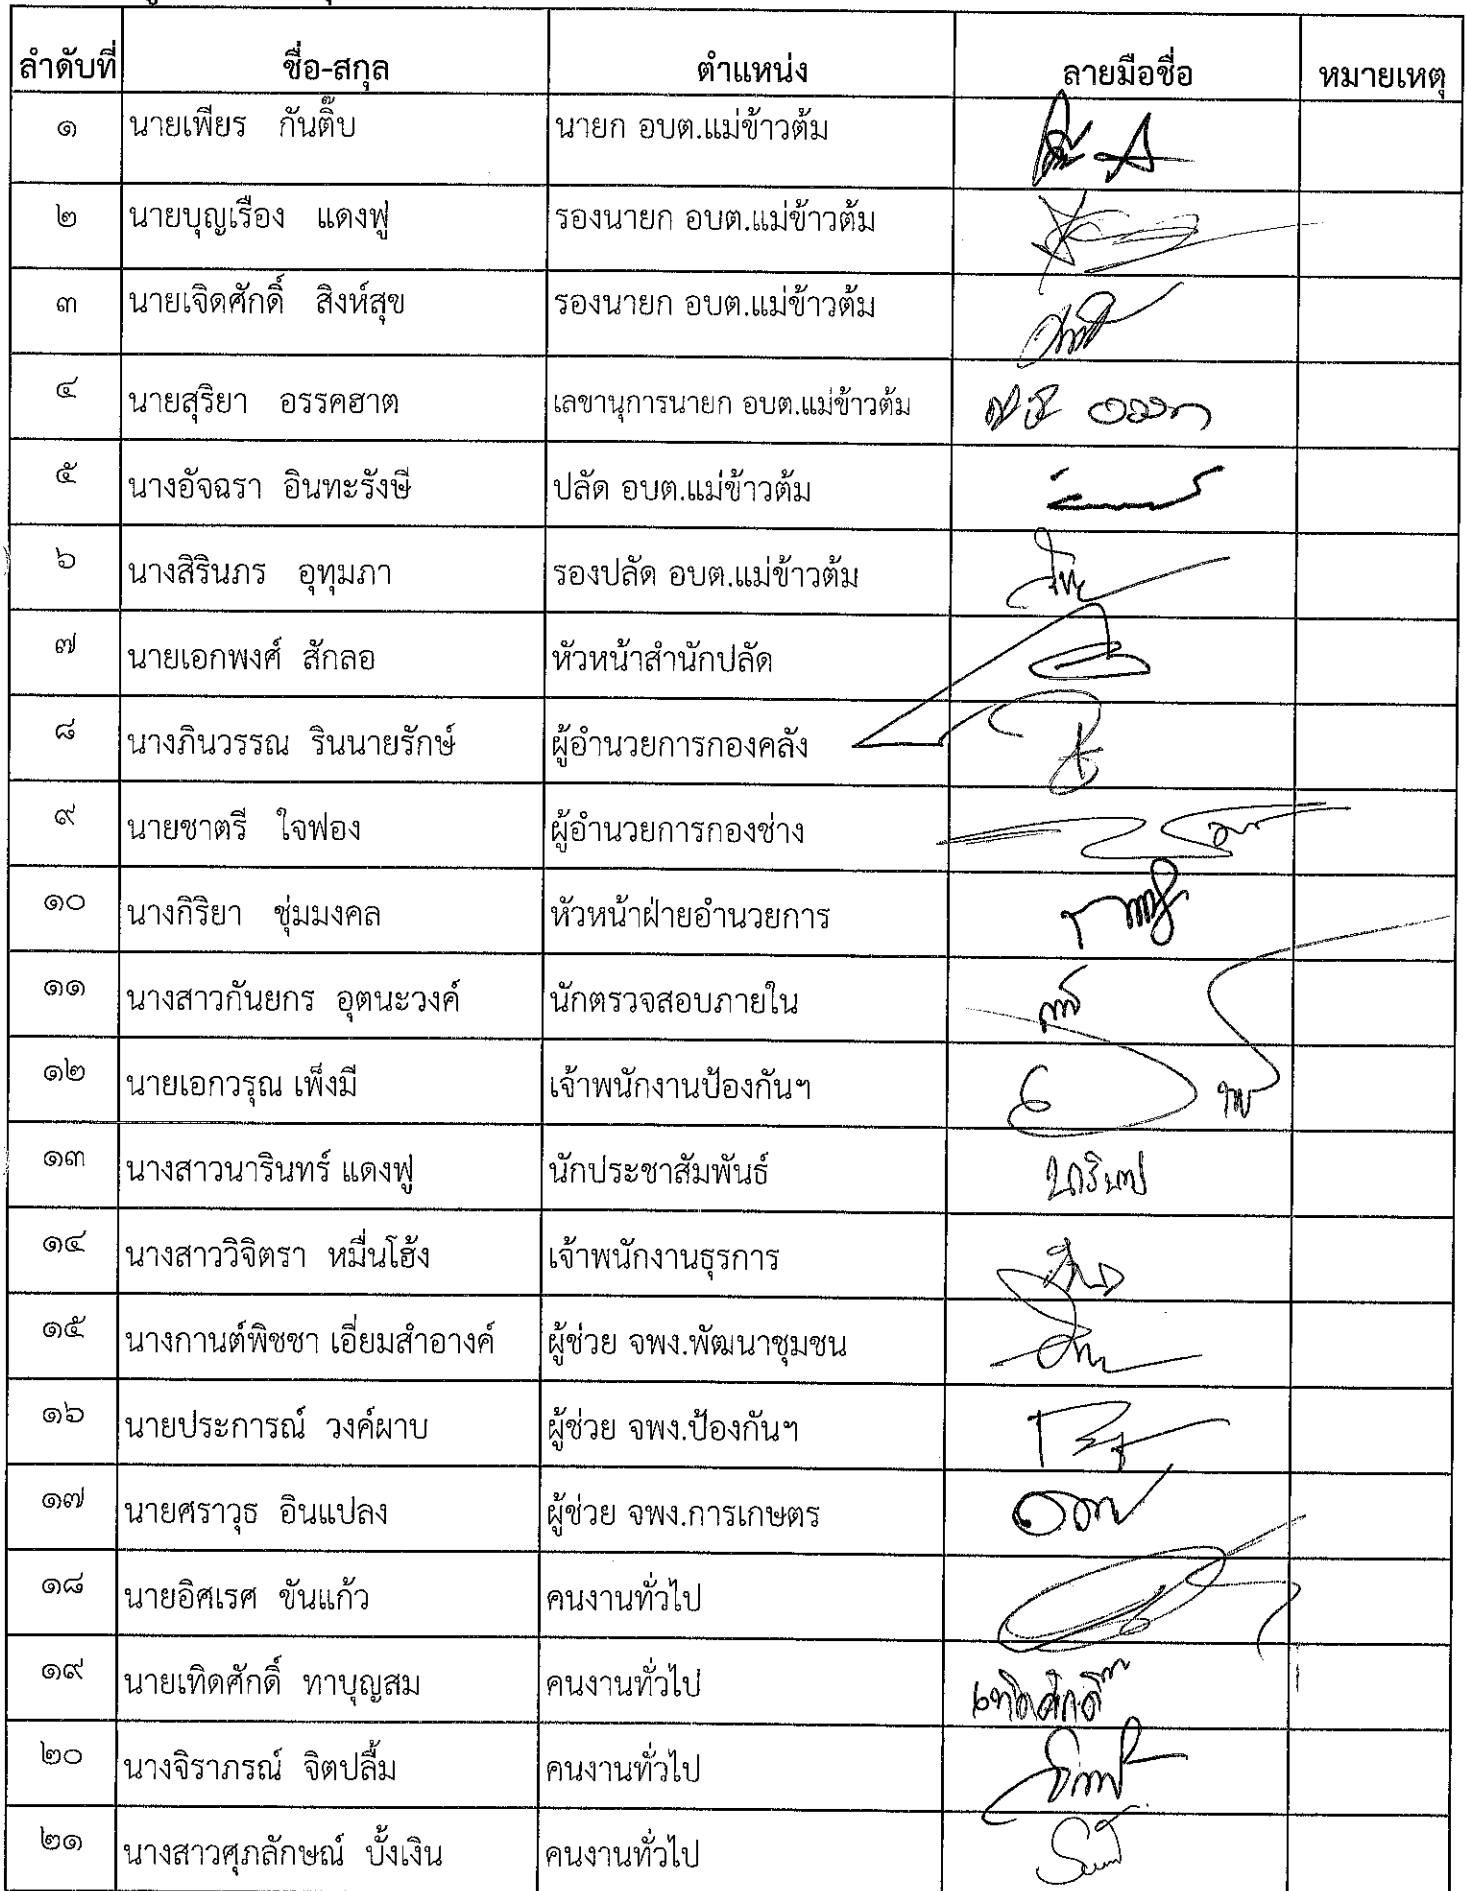 ลำดับที่ ชื่อ-สกุล ตำแหน่ง ลายมือชื่อ หมายเหตุ
๑ นายเพียร กันติ๊บ นายก อบต.แม่ข้าวต้ม
๒ นายบุญเรือง แดงฟู รองนายก อบต.แม่ข้าวต้ม
๓ นายเจิดศักดิ์ สิงห์สุข รองนายก อบต.แม่ข้าวต้ม
๔ นายสุริยา อรรคฮาต เลขานุการนายก อบต.แม่ข้าวต้ม
๕ นางอัจฉรา อินทะรังษี ปลัด อบต.แม่ข้าวต้ม
๖ นางสิรินภร อุทุมภา รองปลัด อบต.แม่ข้าวต้ม
๗ นายเอกพงศ์ สักลอ หัวหน้าสำนักปลัด
๘ นางภินวรรณ รินนายรักษ์ ผู้อำนวยการกองคลัง
๙ นายชาตรี ใจฟอง ผู้อำนวยการกองช่าง
๑๐ นางกิริยา ชุ่มมงคล หัวหน้าฝ่ายอำนวยการ
๑๑ นางสาวกันยกร อุตนะวงค์ นักตรวจสอบภายใน
๑๒ นายเอกวรุณ เพ็งมี เจ้าพนักงานป้องกันฯ
๑๓ นางสาวนารินทร์ แดงฟู นักประชาสัมพันธ์ นารินทร์
๑๔ นางสาววิจิตรา หมื่นโฮ้ง เจ้าพนักงานธุรการ
๑๕ นางกานต์พิชชา เอี่ยมสำอางค์ ผู้ช่วย จพง.พัฒนาชุมชน
๑๖ นายประการณ์ วงค์ผาบ ผู้ช่วย จพง.ป้องกันฯ
๑๗ นายศราวุธ อินแปลง ผู้ช่วย จพง.การเกษตร
๑๘ นายอิศเรศ ขันแก้ว คนงานทั่วไป
๑๙ นายเทิดศักดิ์ ทาบุญสม คนงานทั่วไป เทิดศักดิ์
๒๐ นางจิราภรณ์ จิตปลื้ม คนงานทั่วไป
๒๑ นางสาวศุภลักษณ์ บั้งเงิน คนงานทั่วไป